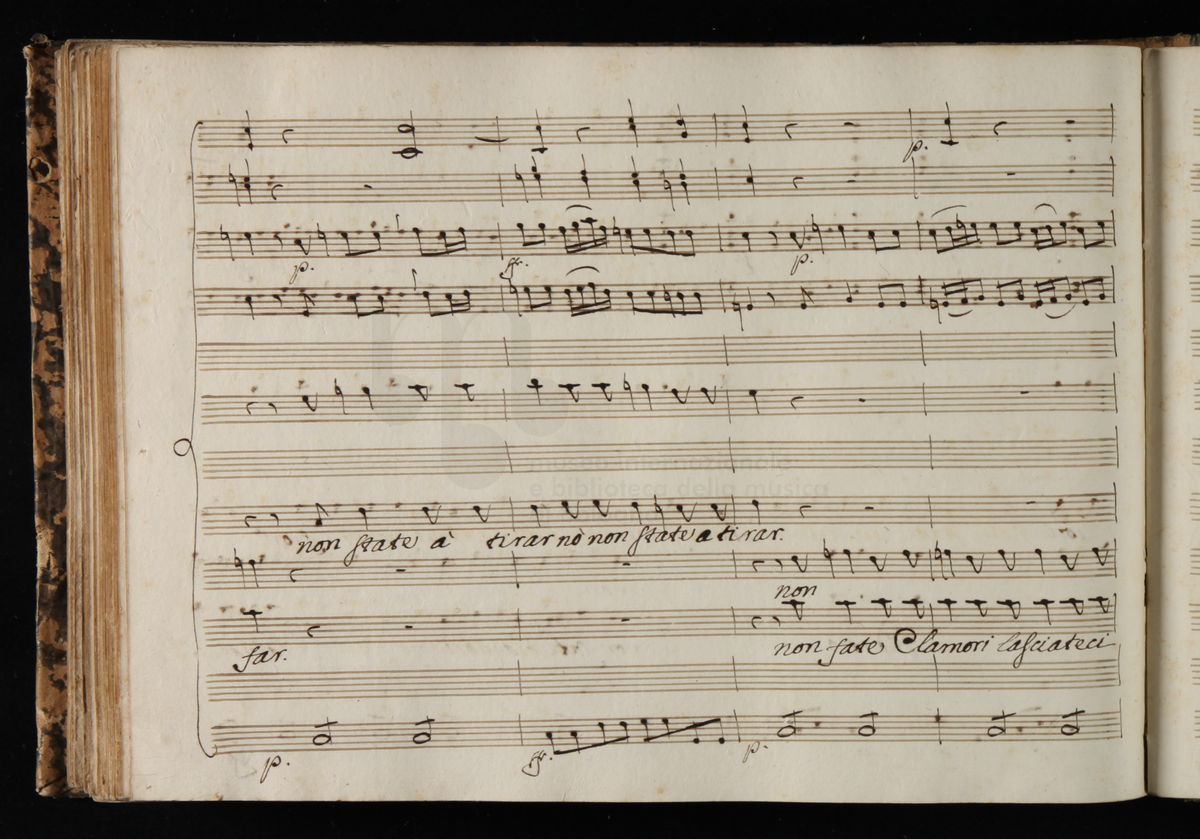 p.
p.
fr.
p.
museo internazionale
e biblioteca della musica
non state à tirar nò non state a tirar.
non
far.
non fate Clamori lasciateci
p.
fr.
p.